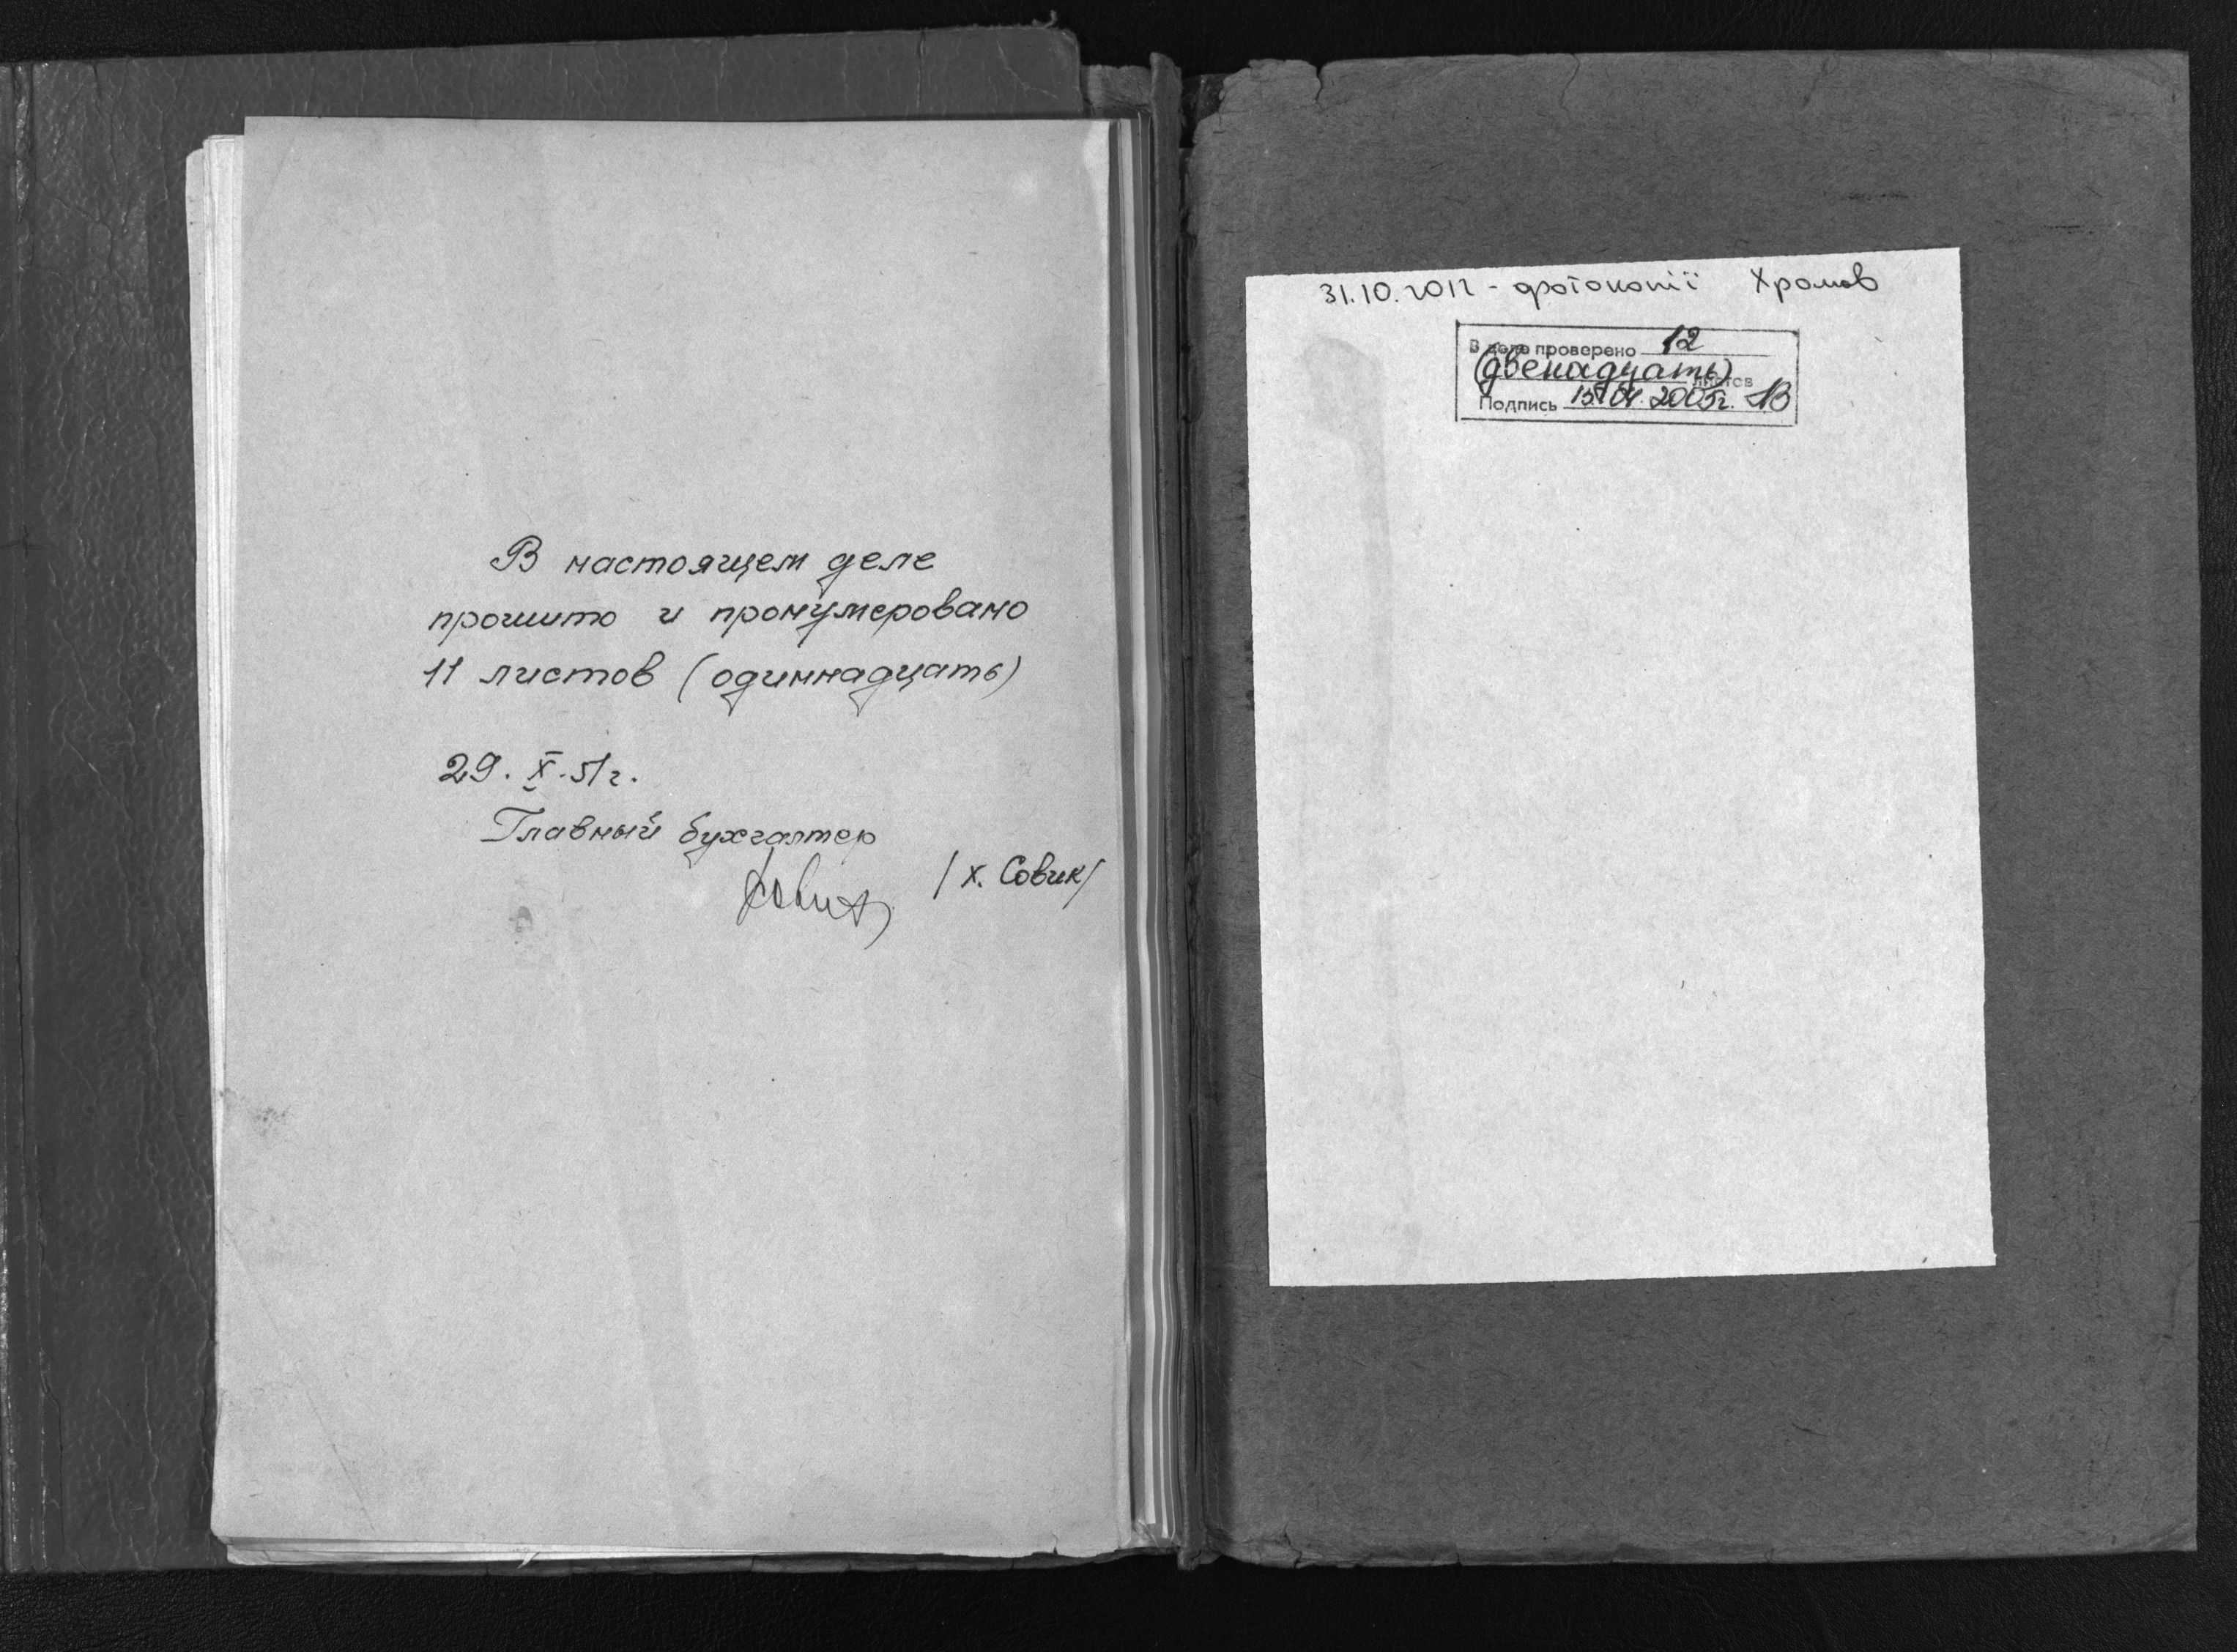 В настоящем деле
прошито и пронумеровано
11 листов (одиннадцать)
29. X. 51 г.
Главный бухгалтер
/ Х. Совик /
31.10.2012 - фотокопії Хромов
В деле проверено 12
(двенадцать) листов
Подпись 2005г.